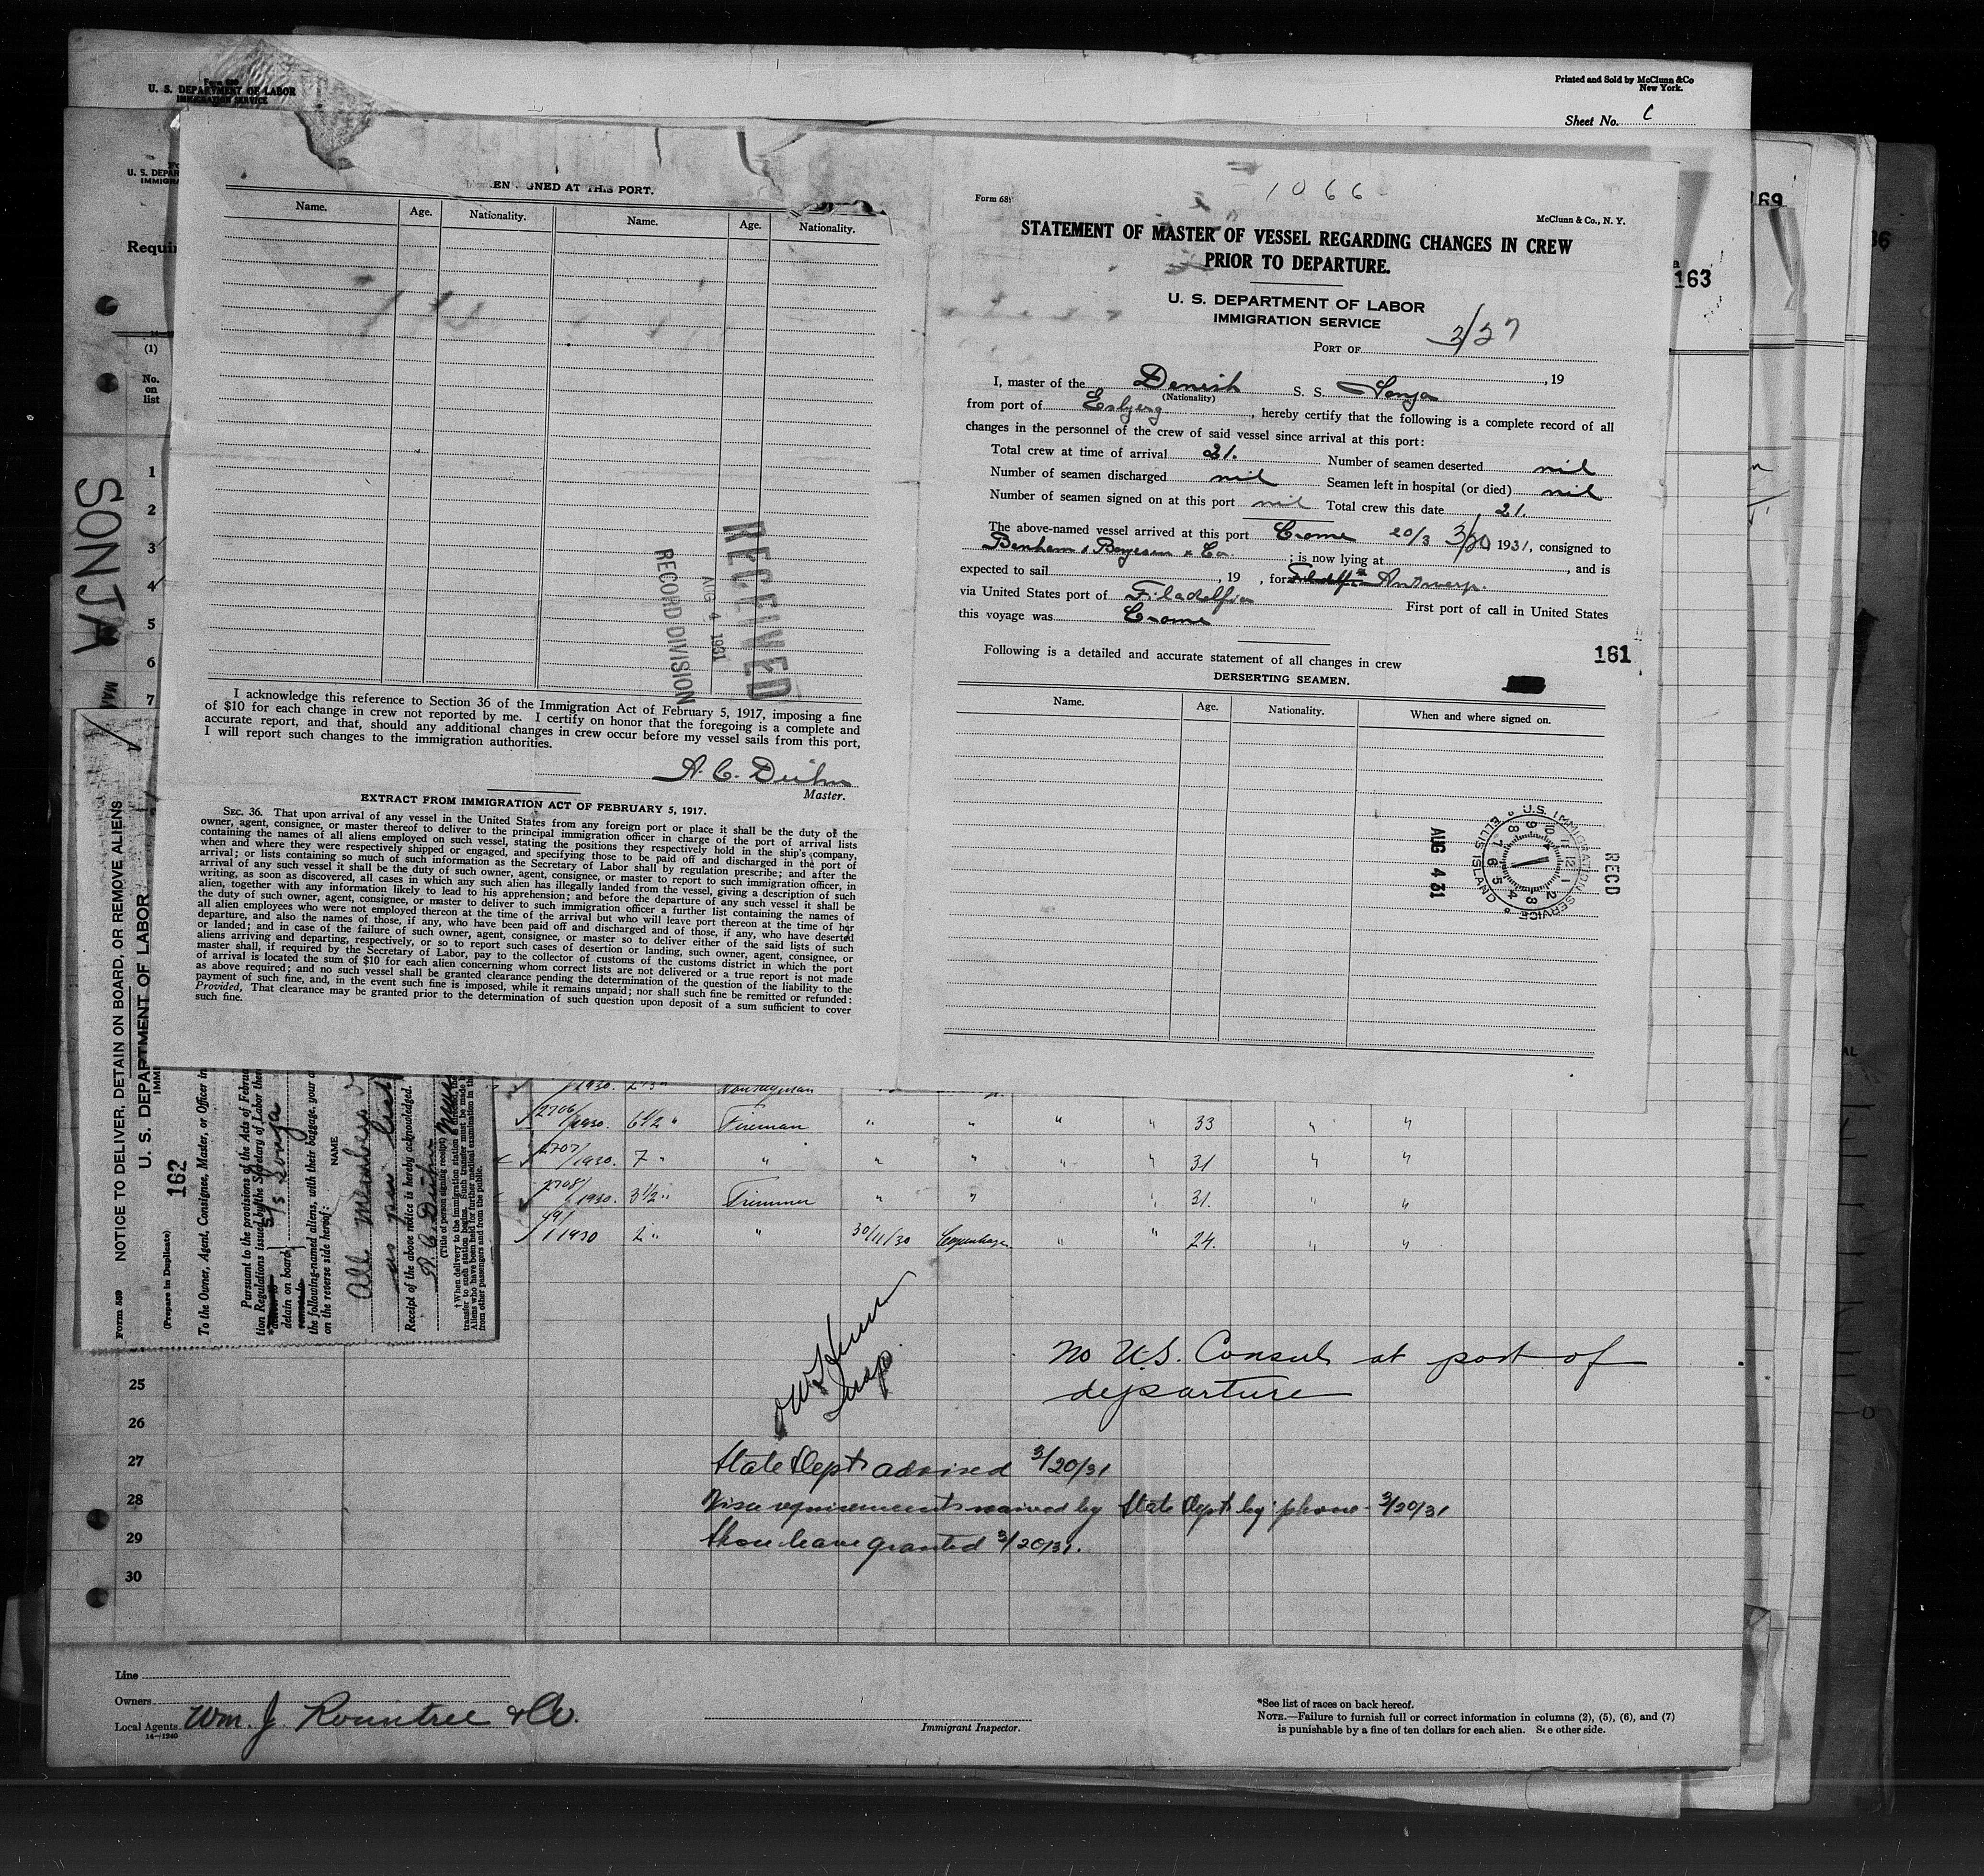 Form 689
U. S. DEPARTMENT OF LABOR
IMMIGRATION SERVICE
Printed and Sold by McClunn & Co
New York.
Sheet No.
U. S. DEPAR
IMMIGRA
Requir
(1)
No.
on
list
1
2
3
4
5
6
7
SONJA
GNED AT THIS PORT.
Name. Age. Nationality. Name. Age. Nationality.
RECEIVED
AUG 4 1931
RECORD DIVISION
I acknowledge this reference to Section 36 of the Immigration Act of February 5, 1917, imposing a fine
of $10 for each change in crew not reported by me. I certify on honor that the foregoing is a complete and
accurate report, and that, should any additional changes in crew occur before my vessel sails from this port,
I will report such changes to the immigration authorities.
A. C. Duhn
Master.
EXTRACT FROM IMMIGRATION ACT OF FEBRUARY 5, 1917.
SEC. 36. That upon arrival of any vessel in the United States from any foreign port or place it shall be the duty of the
owner, agent, consignee, or master thereof to deliver to the principal immigration officer in charge of the port of arrival lists
containing the names of all aliens employed on such vessel, stating the positions they respectively hold in the ship's company,
when and where they were respectively shipped or engaged, and specifying those to be paid off and discharged in the port of
arrival; or lists containing so much of such information as the Secretary of Labor shall by regulation prescribe; and after the
arrival of any such vessel it shall be the duty of such owner, agent, consignee, or master to report to such immigration officer, in
writing, as soon as discovered, all cases in which any such alien has illegally landed from the vessel, giving a description of such
alien, together with any information likely to lead to his apprehension; and before the departure of any such vessel it shall be
the duty of such owner, agent, consignee, or master to deliver to such immigration officer a further list containing the names of
all alien employees who were not employed thereon at the time of the arrival but who will leave port thereon at the time of her
departure, and also the names of those, if any, who have been paid off and discharged and of those, if any, who have deserted
or landed; and in case of the failure of such owner, agent, consignee, or master so to deliver either of the said lists of such
aliens arriving and departing, respectively, or so to report such cases of desertion or landing, such owner, agent, consignee, or
master shall, if required by the Secretary of Labor, pay to the collector of customs of the customs district in which the port
of arrival is located the sum of $10 for each alien concerning whom correct lists are not delivered or a true report is not made
as above required; and no such vessel shall be granted clearance pending the determination of the question of the liability to the
payment of such fine, and, in the event such fine is imposed, while it remains unpaid; nor shall such fine be remitted or refunded:
Provided, That clearance may be granted prior to the determination of such question upon deposit of a sum sufficient to cover
such fine.
Form 68
1066
McClunn & Co., N. Y.
STATEMENT OF MASTER OF VESSEL REGARDING CHANGES IN CREW
PRIOR TO DEPARTURE.
U. S. DEPARTMENT OF LABOR
IMMIGRATION SERVICE
3/27
PORT OF
, 19
I, master of the Danish S. S. Sonja
(Nationality)
from port of Esbjerg, hereby certify that the following is a complete record of all
changes in the personnel of the crew of said vessel since arrival at this port:
Total crew at time of arrival 21. Number of seamen deserted nil
Number of seamen discharged nil Seamen left in hospital (or died) nil
Number of seamen signed on at this port nil Total crew this date 21.
The above-named vessel arrived at this port 20/3 3/20, 1931, consigned to
Benham & Boyesen & Co. ; is now lying at , and is
expected to sail , 19 , for Antwerp.
via United States port of Filadelfia First port of call in United States
this voyage was
161
Following is a detailed and accurate statement of all changes in crew
DERSERTING SEAMEN.
Name. Age. Nationality. When and where signed on.
U.S. IMMIGRATION SERVICE ELLIS ISLAND
RECD
AUG 4 31
169
163
36
NOTICE TO DELIVER, DETAIN ON BOARD, OR REMOVE ALIENS
U. S. DEPARTMENT OF LABOR
162
Form 559
(Prepare in Duplicate)
To the Owner, Agent, Consignee, Master, or Officer in
Pursuant to the provisions of the Acts of Februa
tion Regulations issued by the Secretary of Labor there
S/S Sonja
detain on board
the following-named aliens, with their baggage, your a
on the reverse side hereof:
NAME
All members
as per list
Receipt of the above notice is hereby acknowledged.
A. C. Duhn
(Title of person signing receipt)
† When delivery to the immigration station is directed, the
transfer to such station begins. Such transfer must be made
Aliens who have been held for further medical examination in the
from other passengers and from the public.
1930.
2706/1930. 6 1/2 " Fireman " " " " 33 " "
2707/1930. 7 " " " " " " 31 " "
2708/1930. 3 1/2 " Trimmer " " " 31. " "
49/1930 2 " " 30/11/30 Copenhagen " " 24. " "
Insp
No U.S. Consul at port of
departure
State Dept advised 3/20/31
Visa requirements waived by State Dept by phone - 3/20/31
Shore leave granted 3/20/31.
25
26
27
28
29
30
Line
Owners
Local Agents Wm. J. Rountree & Co.
14—1240
Immigrant Inspector.
*See list of races on back hereof.
NOTE.—Failure to furnish full or correct information in columns (2), (5), (6), and (7)
is punishable by a fine of ten dollars for each alien. See other side.